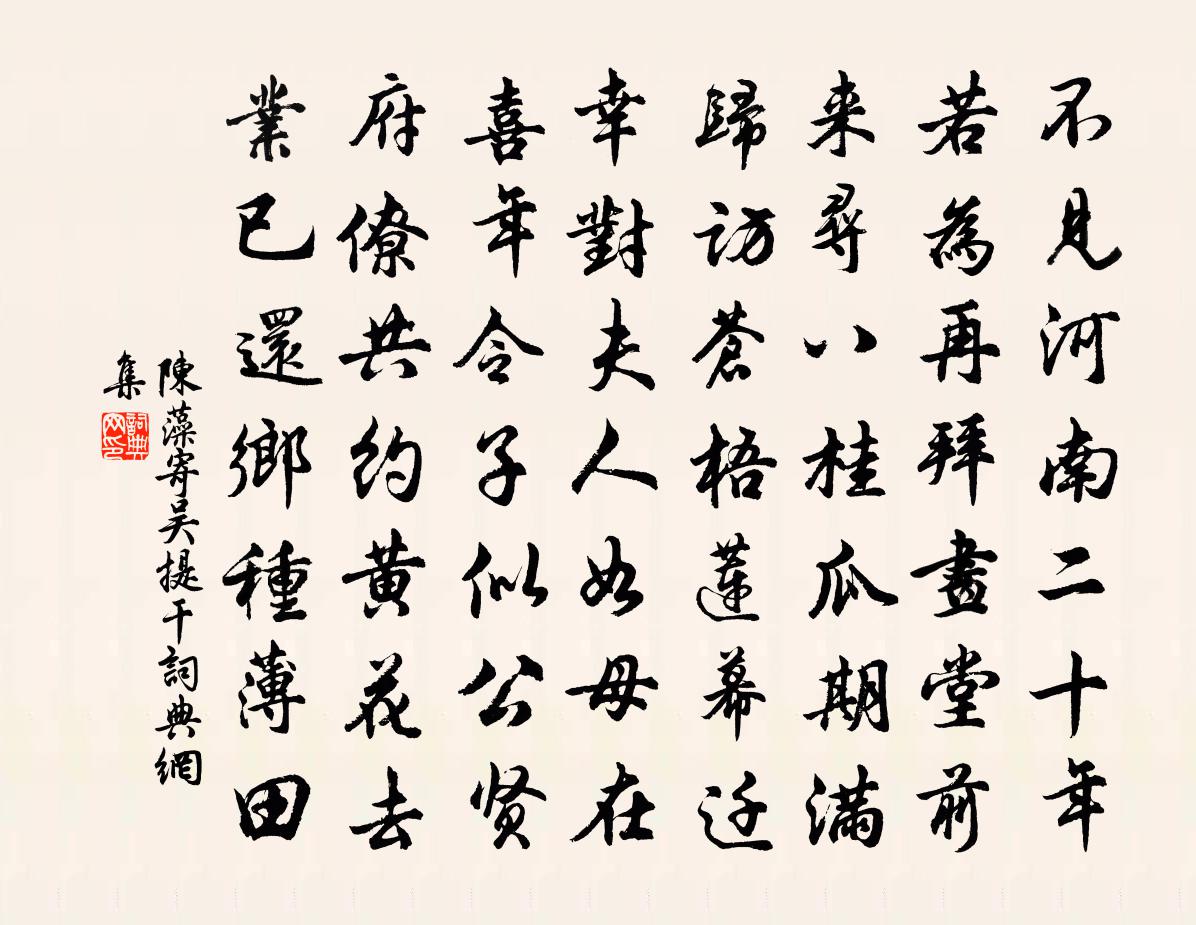 不見河南二十年
若為再拜畫堂前
来尋八桂瓜期滿
歸訪蒼梧蓮幕迁
幸對夫人如母在
喜年令子似公贤
府僚共約黄花去
業已還鄉種薄田
陳藻寄吴提干詞典網
集
詞典网印